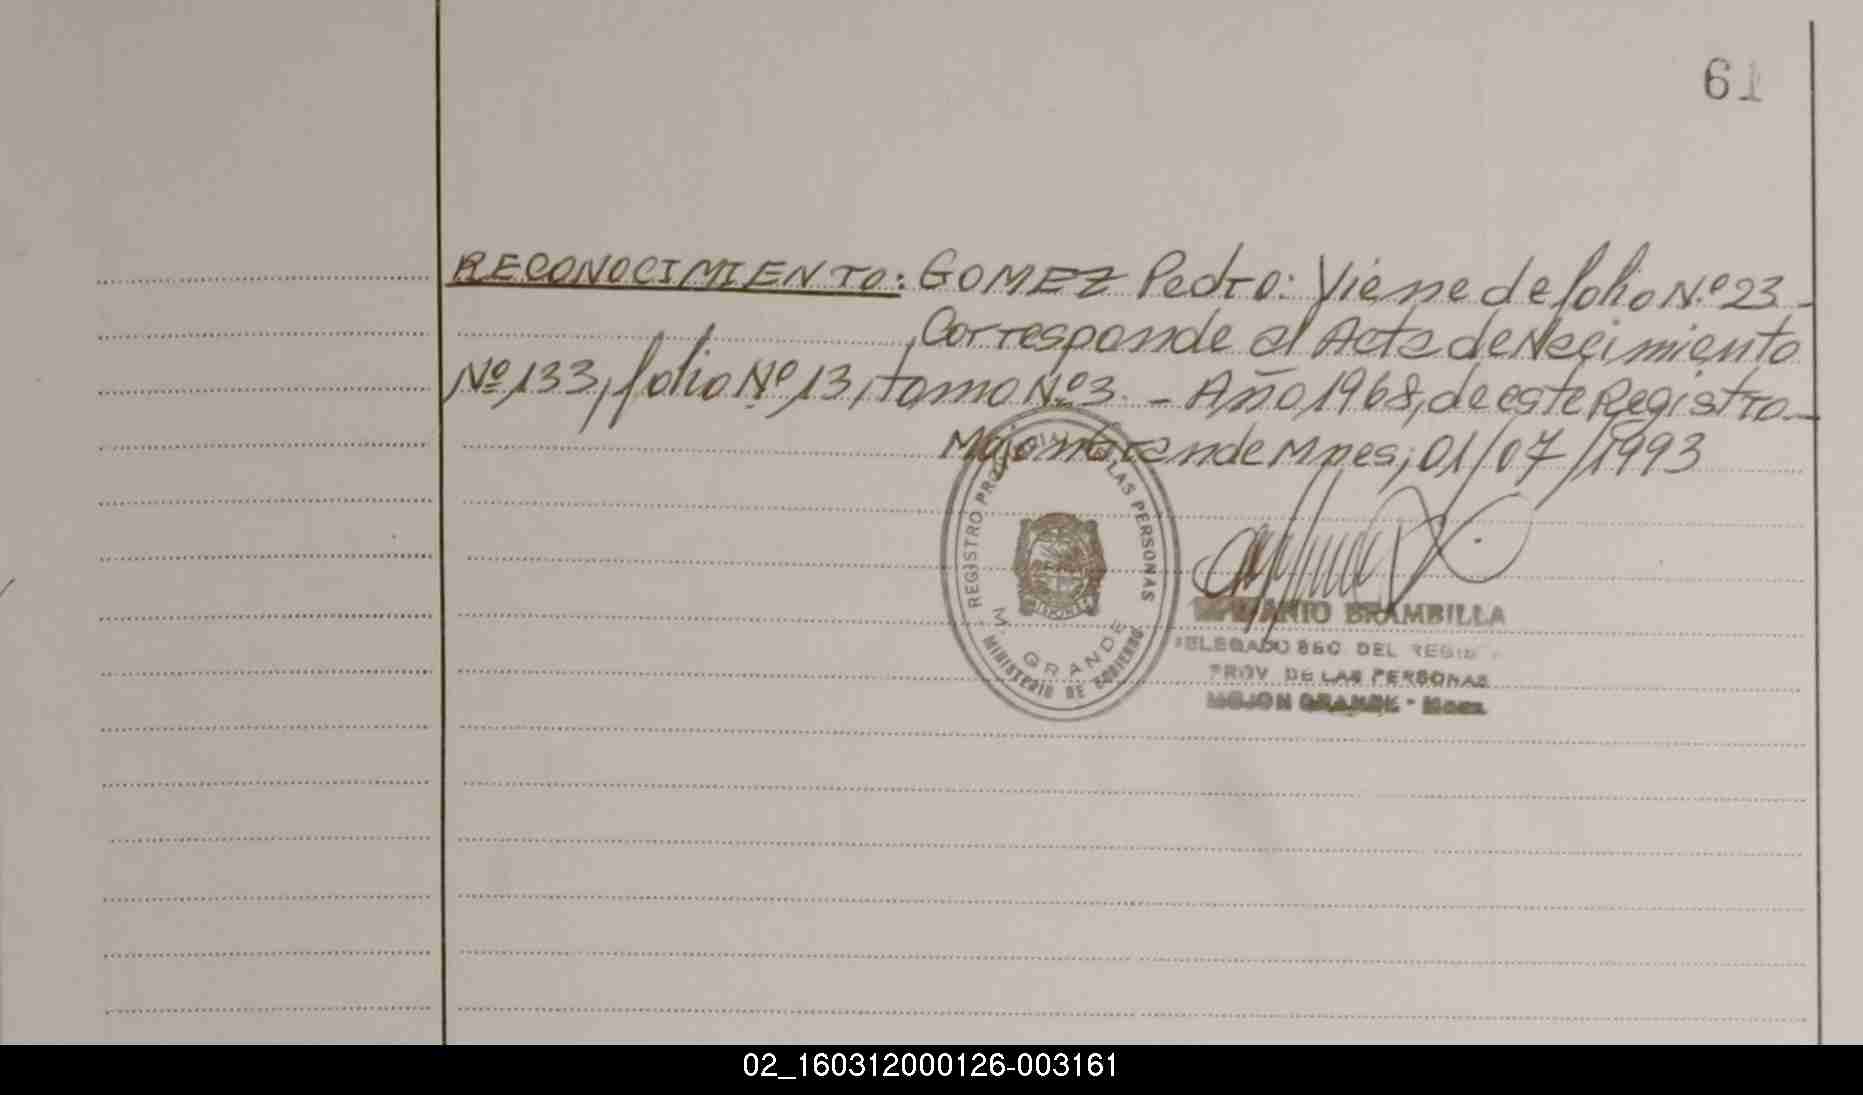 61
RECONOCIMIENTO: GOMEZ Pedro: Viene de folio N.º 23 -
Corresponde al Acta de Nacimiento
Nº 133, folio Nº 13, tomo Nº 3. - Año 1968, de este Registro.-
Mojon Grande Mnes, 01/07/1993
REGISTRO PROVINCIAL DE LAS PERSONAS
M. GRANDE
MINISTERIO DE GOBIERNO
BRAMBILLA
DELEGADO SEC. DEL REGIS
PROV. DE LAS PERSONAS
MOJON GRANDE - Mnes.
02_160312000126-003161